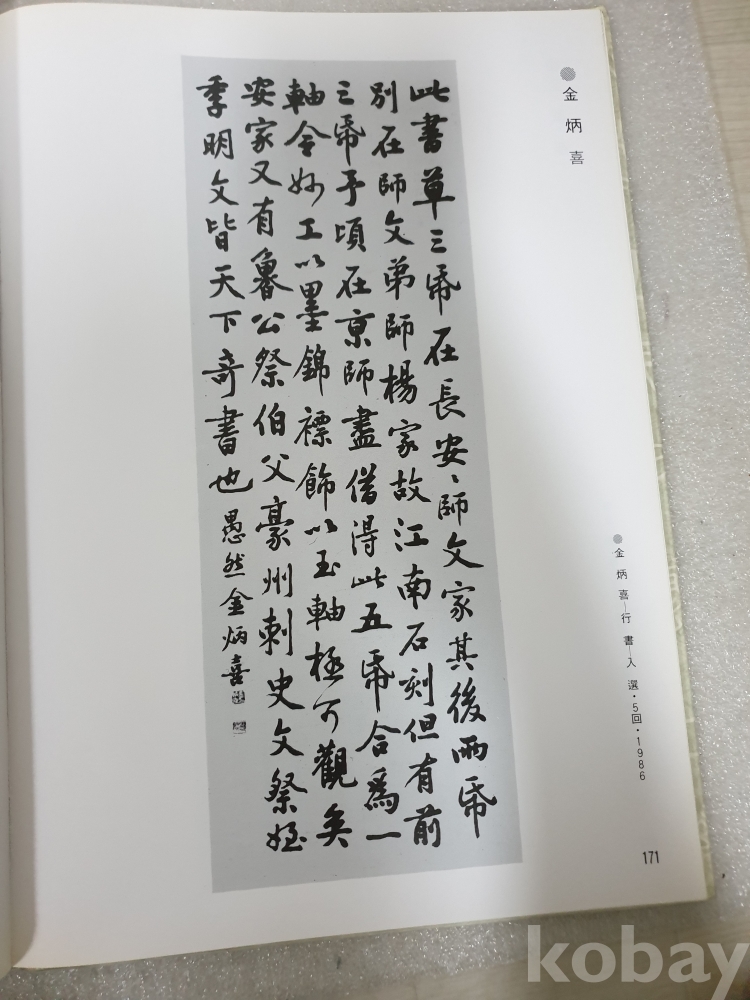 金炳喜
此書草三帋在長安、師文家其後兩帋
別在師文弟師楊家故江南石刻但有前
三帋予頃在京師盡借得此五帋合爲一
軸令妙工以墨錦褾飾以玉軸極可觀矣
安家又有魯公祭伯父豪州刺史文祭姪
季明文皆天下奇書也 愚然金炳喜
金炳喜—行書—入選・5回・1986
171
kobay